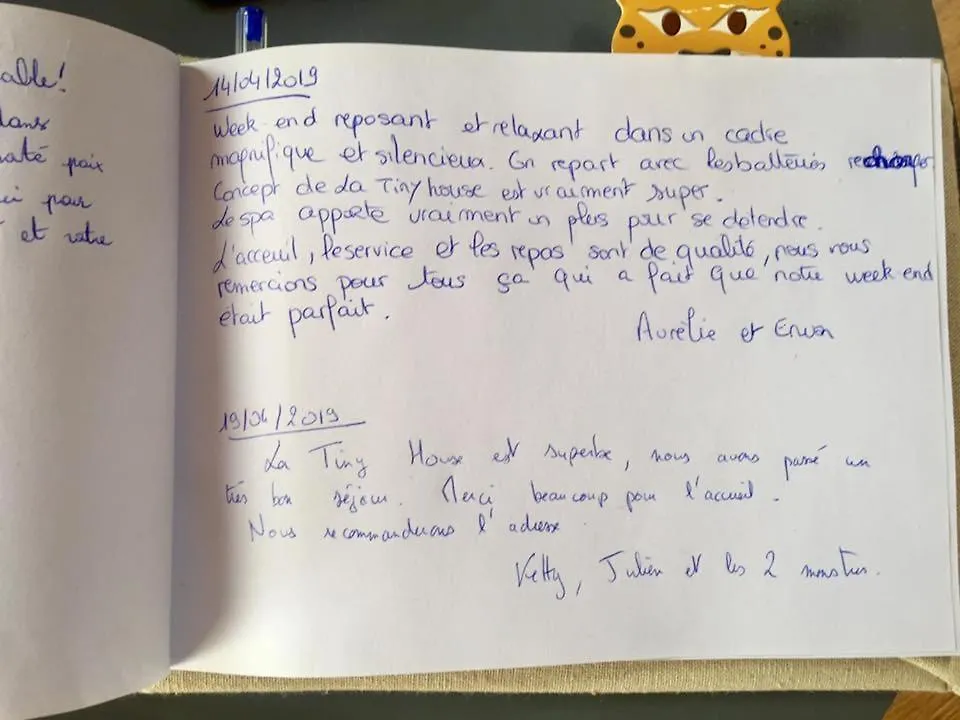 able!
dans
paix
pour
et votre
14/04/2019
Week end reposant et relaxant dans un cadre
magnifique et silencieux. On repart avec les batteries recharger
Concept de La Tiny house est vraiment super.
Le spa apporte vraiment un plus pour se detendre.
L'acceuil, le service et les repas sont de qualité, nous vous
remercions pour tous ça qui a fait que notre week end
était parfait.
Aurélie et Erwan
19/04/2019
La Tiny House est superbe, nous avons passé un
très bon séjour. Merci beaucoup pour l'accueil.
Nous recommanderons l'adresse
Ketty, Julien et les 2 monstres.